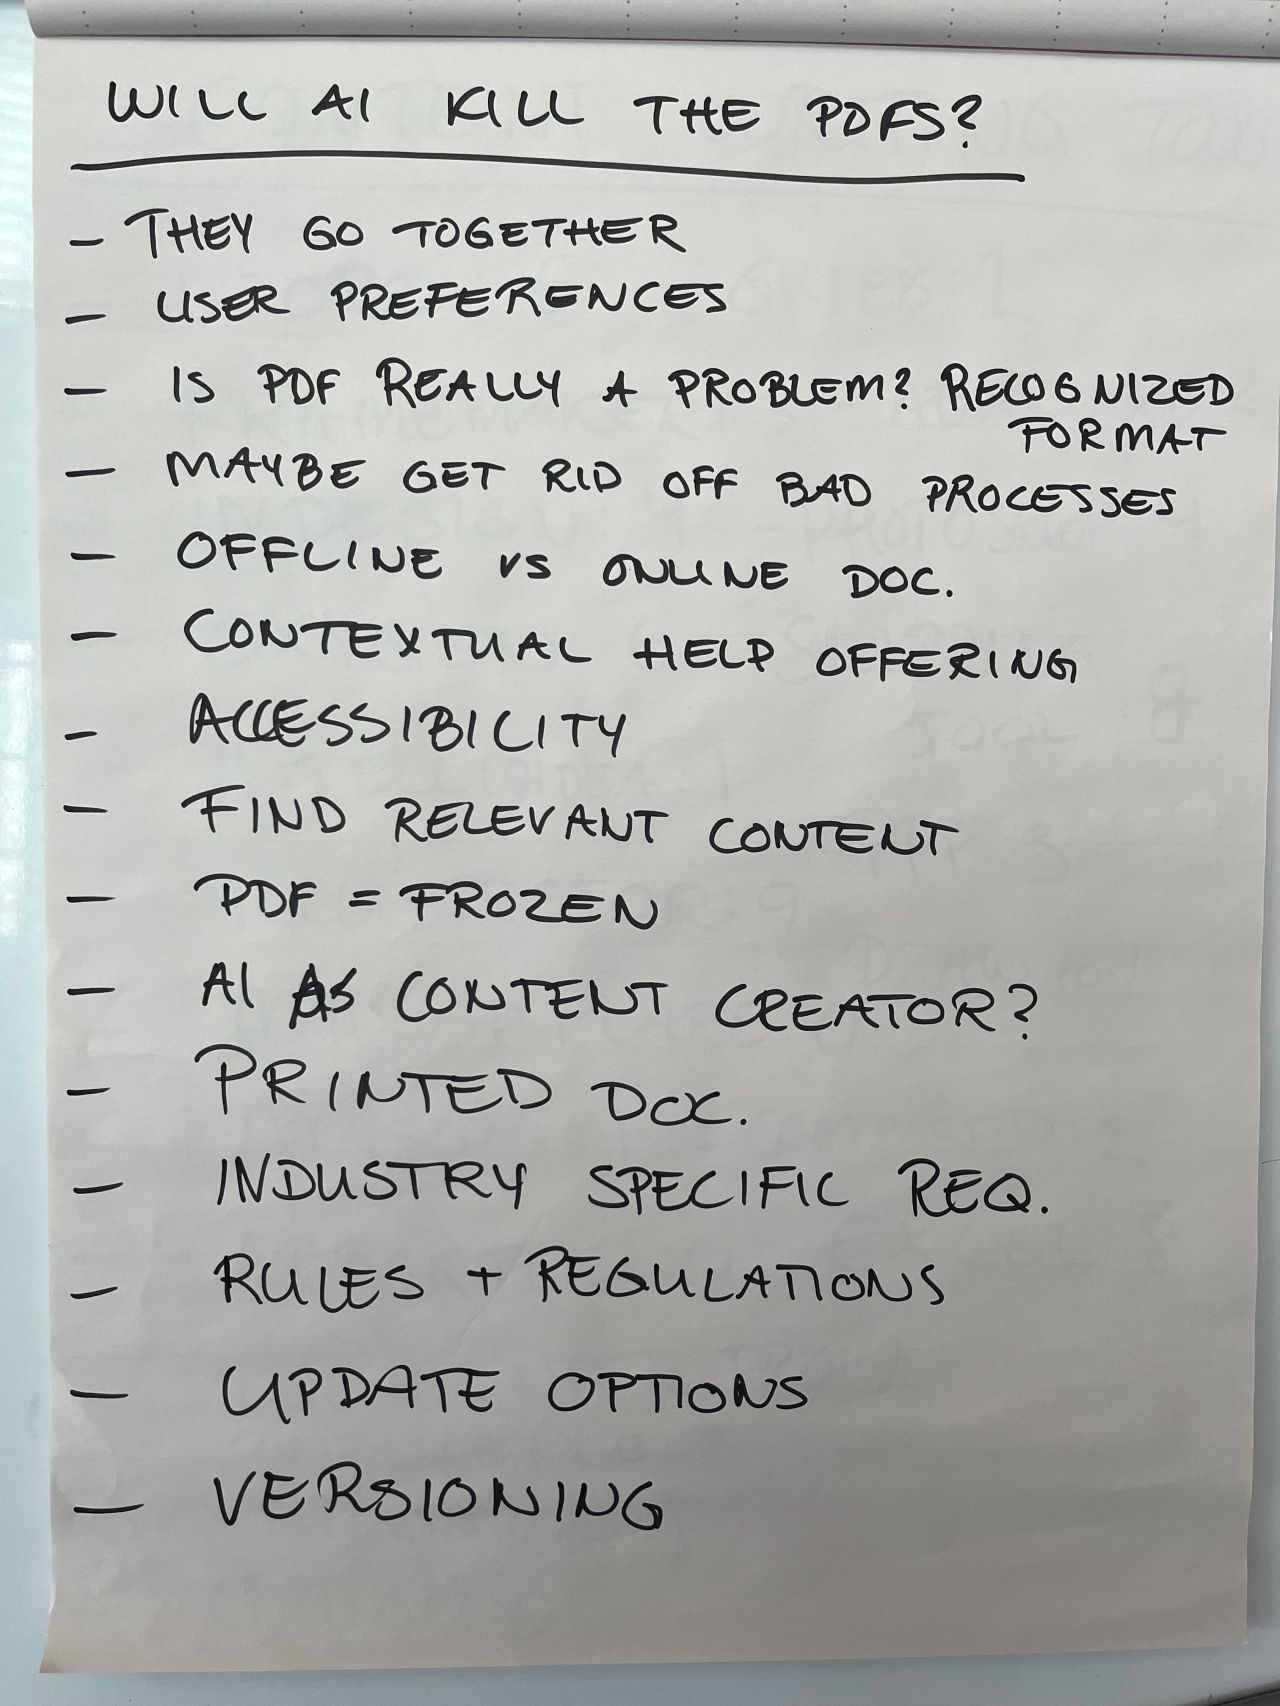 WILL AI KILL THE PDFS?
- THEY GO TOGETHER
- USER PREFERENCES
- IS PDF REALLY A PROBLEM? RECOGNIZED
FORMAT
- MAYBE GET RID OFF BAD PROCESSES
- OFFLINE VS ONLINE DOC.
- CONTEXTUAL HELP OFFERING
- ACCESSIBILITY
- FIND RELEVANT CONTENT
- PDF = FROZEN
- AI AS CONTENT CREATOR?
- PRINTED DOC.
- INDUSTRY SPECIFIC REQ.
- RULES + REGULATIONS
- UPDATE OPTIONS
- VERSIONING